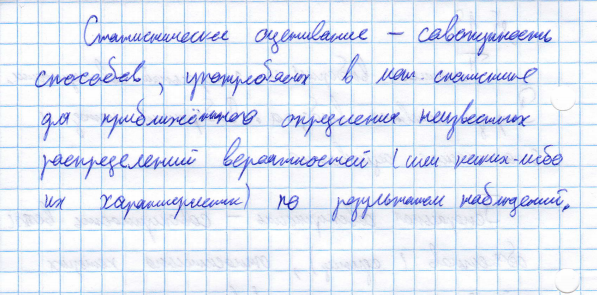 Статистическое оценивание – совокупность
способов, употребляемых в мат. статистике
для приближённого определения неизвестных
распределений вероятностей (или каких-либо
их характеристик) по результатам наблюдений.